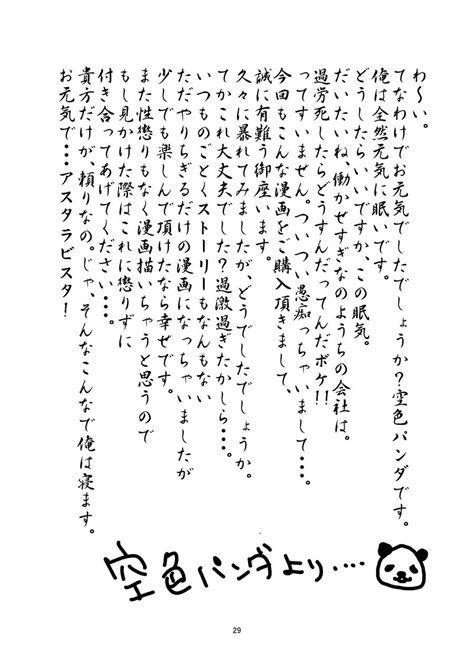 わ～い。
てなわけでお元気でしたでしょうか？空色パンダです。
俺は全然元気に眠いです。
どうしたらいいですか、この眠気。
だいたいね、働かせすぎなのようちの会社は。
過労死したらどうすんだってんだボケ!!
ってすいません。ついつい愚痴っちゃいまして・・・
今回もこんな漫画をご購入頂きまして、
誠に有難う御座います。
久々に暴れてみましたが、どうでしたでしょうか。
てかこれ大丈夫でした？過激過ぎたかしら・・・。
いつものごとくストーリーもなんもない
ただやりちぎるだけの漫画になっちゃいましたが
少しでも楽しんで頂けたなら幸せです。
また性懲りもなく漫画描いちゃうと思うので
もし見かけた際はこれに懲りずに
付き合ってあげてください・・・。
貴方だけが、頼りなの。じゃ、そんなこんなで俺は寝ます。
お元気で・・・アスタラビスタ！
空色パンダより・・・・
29